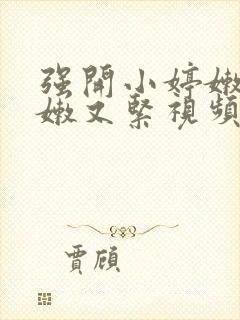 强開小婷嫩
嫩又緊視頻
賈頎